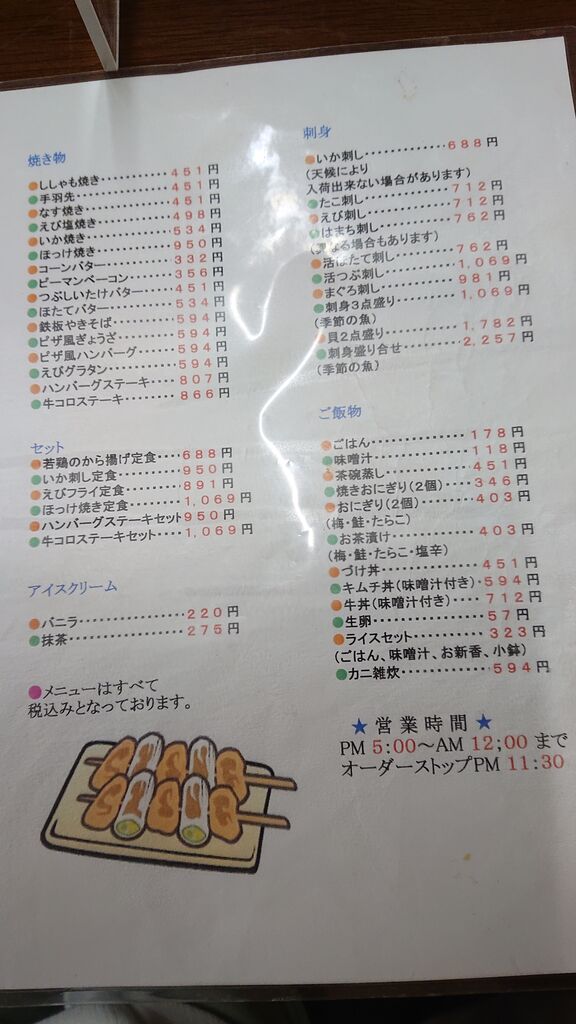 焼き物
●ししゃも焼き・・・・・・・・・・・451円
●手羽先・・・・・・・・・・・・・・・451円
●なす焼き・・・・・・・・・・・・・451円
●えび塩焼き・・・・・・・・・・・498円
●いか焼き・・・・・・・・・・・・・534円
●ほっけ焼き・・・・・・・・・・・950円
●コーンバター・・・・・・・・・332円
●ピーマンベーコン・・・・・・356円
●つぶしいたけバター・・・・451円
●ほたてバター・・・・・・・・・534円
●鉄板やきそば・・・・・・・・・594円
●ピザ風ぎょうざ・・・・・・・・594円
●ピザ風ハンバーグ・・・・・・594円
●えびグラタン・・・・・・・・・・594円
●ハンバーグステーキ・・・・807円
●牛コロステーキ・・・・・・・・866円
セット
●若鶏のから揚げ定食・・・・688円
●いか刺し定食・・・・・・・・・950円
●えびフライ定食・・・・・・・・891円
●ほっけ焼き定食・・・・・・1,069円
●ハンバーグステーキセット950円
●牛コロステーキセット・・・・1,069円
アイスクリーム
●バニラ・・・・・・・・・・・・・・・220円
●抹茶・・・・・・・・・・・・・・・・・275円
●メニューはすべて
税込みとなっております。
刺身
●いか刺し・・・・・・・・・・・・・688円
(天候により
入荷出来ない場合があります)
●たこ刺し・・・・・・・・・・・・・712円
●えび刺し・・・・・・・・・・・・・712円
●はまち刺し・・・・・・・・・・・762円
(異なる場合もあります)
●活ほたて刺し・・・・・・・・・762円
●活つぶ刺し・・・・・・・・・1,069円
●まぐろ刺し・・・・・・・・・・・981円
●刺身3点盛り・・・・・・・・1,069円
(季節の魚)
●貝2点盛り・・・・・・・・・・1,782円
●刺身盛り合せ・・・・・・・・2,257円
(季節の魚)
ご飯物
●ごはん・・・・・・・・・・・・・・・178円
●味噌汁・・・・・・・・・・・・・・・118円
●茶碗蒸し・・・・・・・・・・・・・451円
●焼きおにぎり(2個)・・・・・346円
●おにぎり(2個)・・・・・・・・403円
(梅・鮭・たらこ)
●お茶漬け・・・・・・・・・・・・・403円
(梅・鮭・たらこ・塩辛)
●づけ丼・・・・・・・・・・・・・・・451円
●キムチ丼(味噌汁付き)・594円
●牛丼(味噌汁付き)・・・・712円
●生卵・・・・・・・・・・・・・・・・・57円
●ライスセット・・・・・・・・・・323円
(ごはん、味噌汁、お新香、小鉢)
●カニ雑炊・・・・・・・・・・・・・594円
★営業時間★
PM 5:00～AM 12;00 まで
オーダーストップPM 11:30